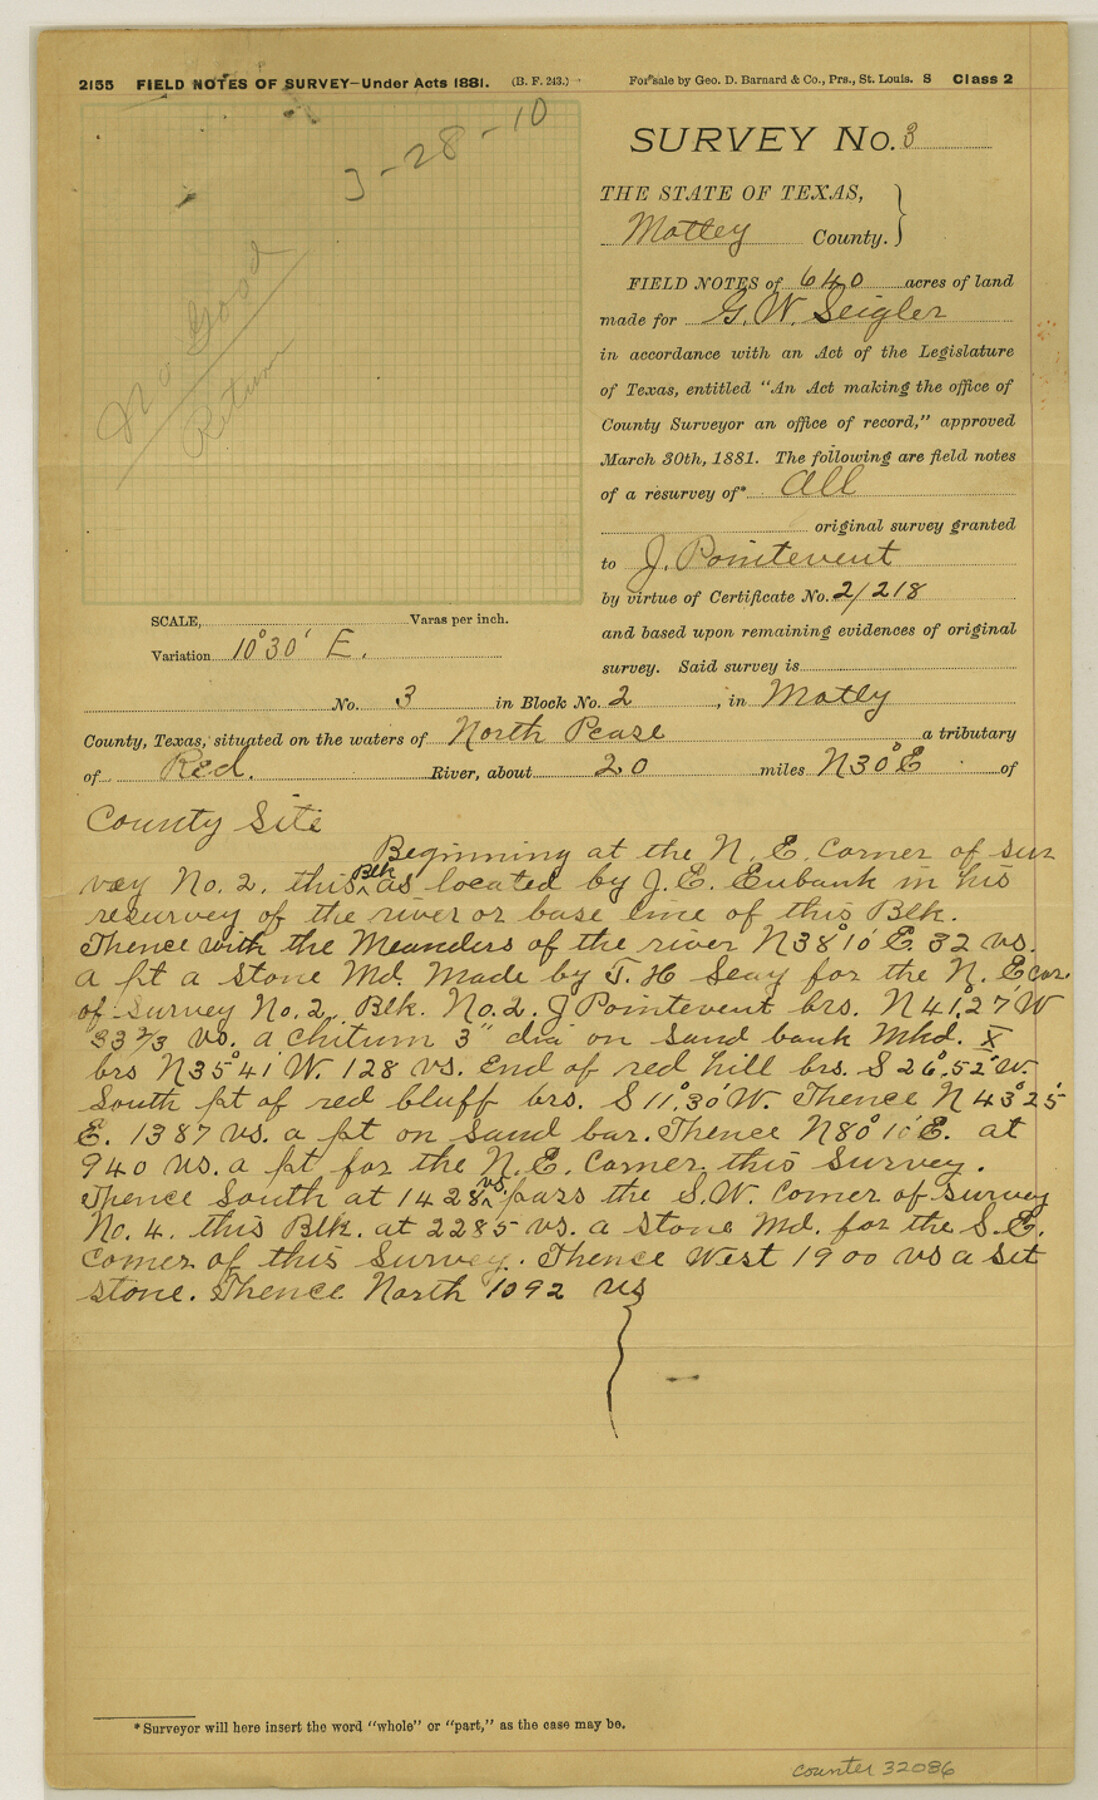 2155 FIELD NOTES OF SURVEY—Under Acts 1881. (B. F. 243.) For sale by Geo. D. Barnard & Co., Prs., St. Louis. S Class 2
3-28-10
No Good
Return
SURVEY No. 3
THE STATE OF TEXAS,
Motley County.
FIELD NOTES of 640 acres of land
made for G. W. Seigler
in accordance with an Act of the Legislature
of Texas, entitled "An Act making the office of
County Surveyor an office of record," approved
March 30th, 1881. The following are field notes
of a resurvey of* All
original survey granted
to J. Pointevent
by virtue of Certificate No. 2/218
and based upon remaining evidences of original
survey. Said survey is
SCALE, Varas per inch.
Variation 10°30' E.
No. 3 in Block No. 2, in Motly
County, Texas, situated on the waters of North Pease a tributary
of Red. River, about 20 miles N30°E of
County Site
Beginning at the N. E. Corner of sur
vey No. 2. this Blk as located by J. E. Eubank in his
resurvey of the river or base line of this Blk.
Thence with the Meanders of the river N38°10'E. 32 vs.
a pt a stone Md. Made by T. H Seay for the N. E cor.
of Survey No. 2, Blk. No. 2. J Pointevent brs. N 41°.27'W
33 2/3 vs. a Chitum 3" dia on sand bank Mkd. X
brs N35°41'W. 128 vs. End of red hill brs. S 26°.52'W.
South pt of red bluff brs. S 11°.30'W. Thence N 43°25'
E. 1387 vs. a pt on sand bar. Thence N80°10'E. at
940 vs. a pt for the N. E. Corner this survey.
Thence South at 1428 vs. pass the S. W. Corner of survey
No. 4. this Blk. at 2285 vs. a stone Md. for the S. E.
Corner of this Survey. Thence West 1900 vs a set
stone. Thence North 1092 vs
*Surveyor will here insert the word "whole" or "part," as the case may be.
counter 32086